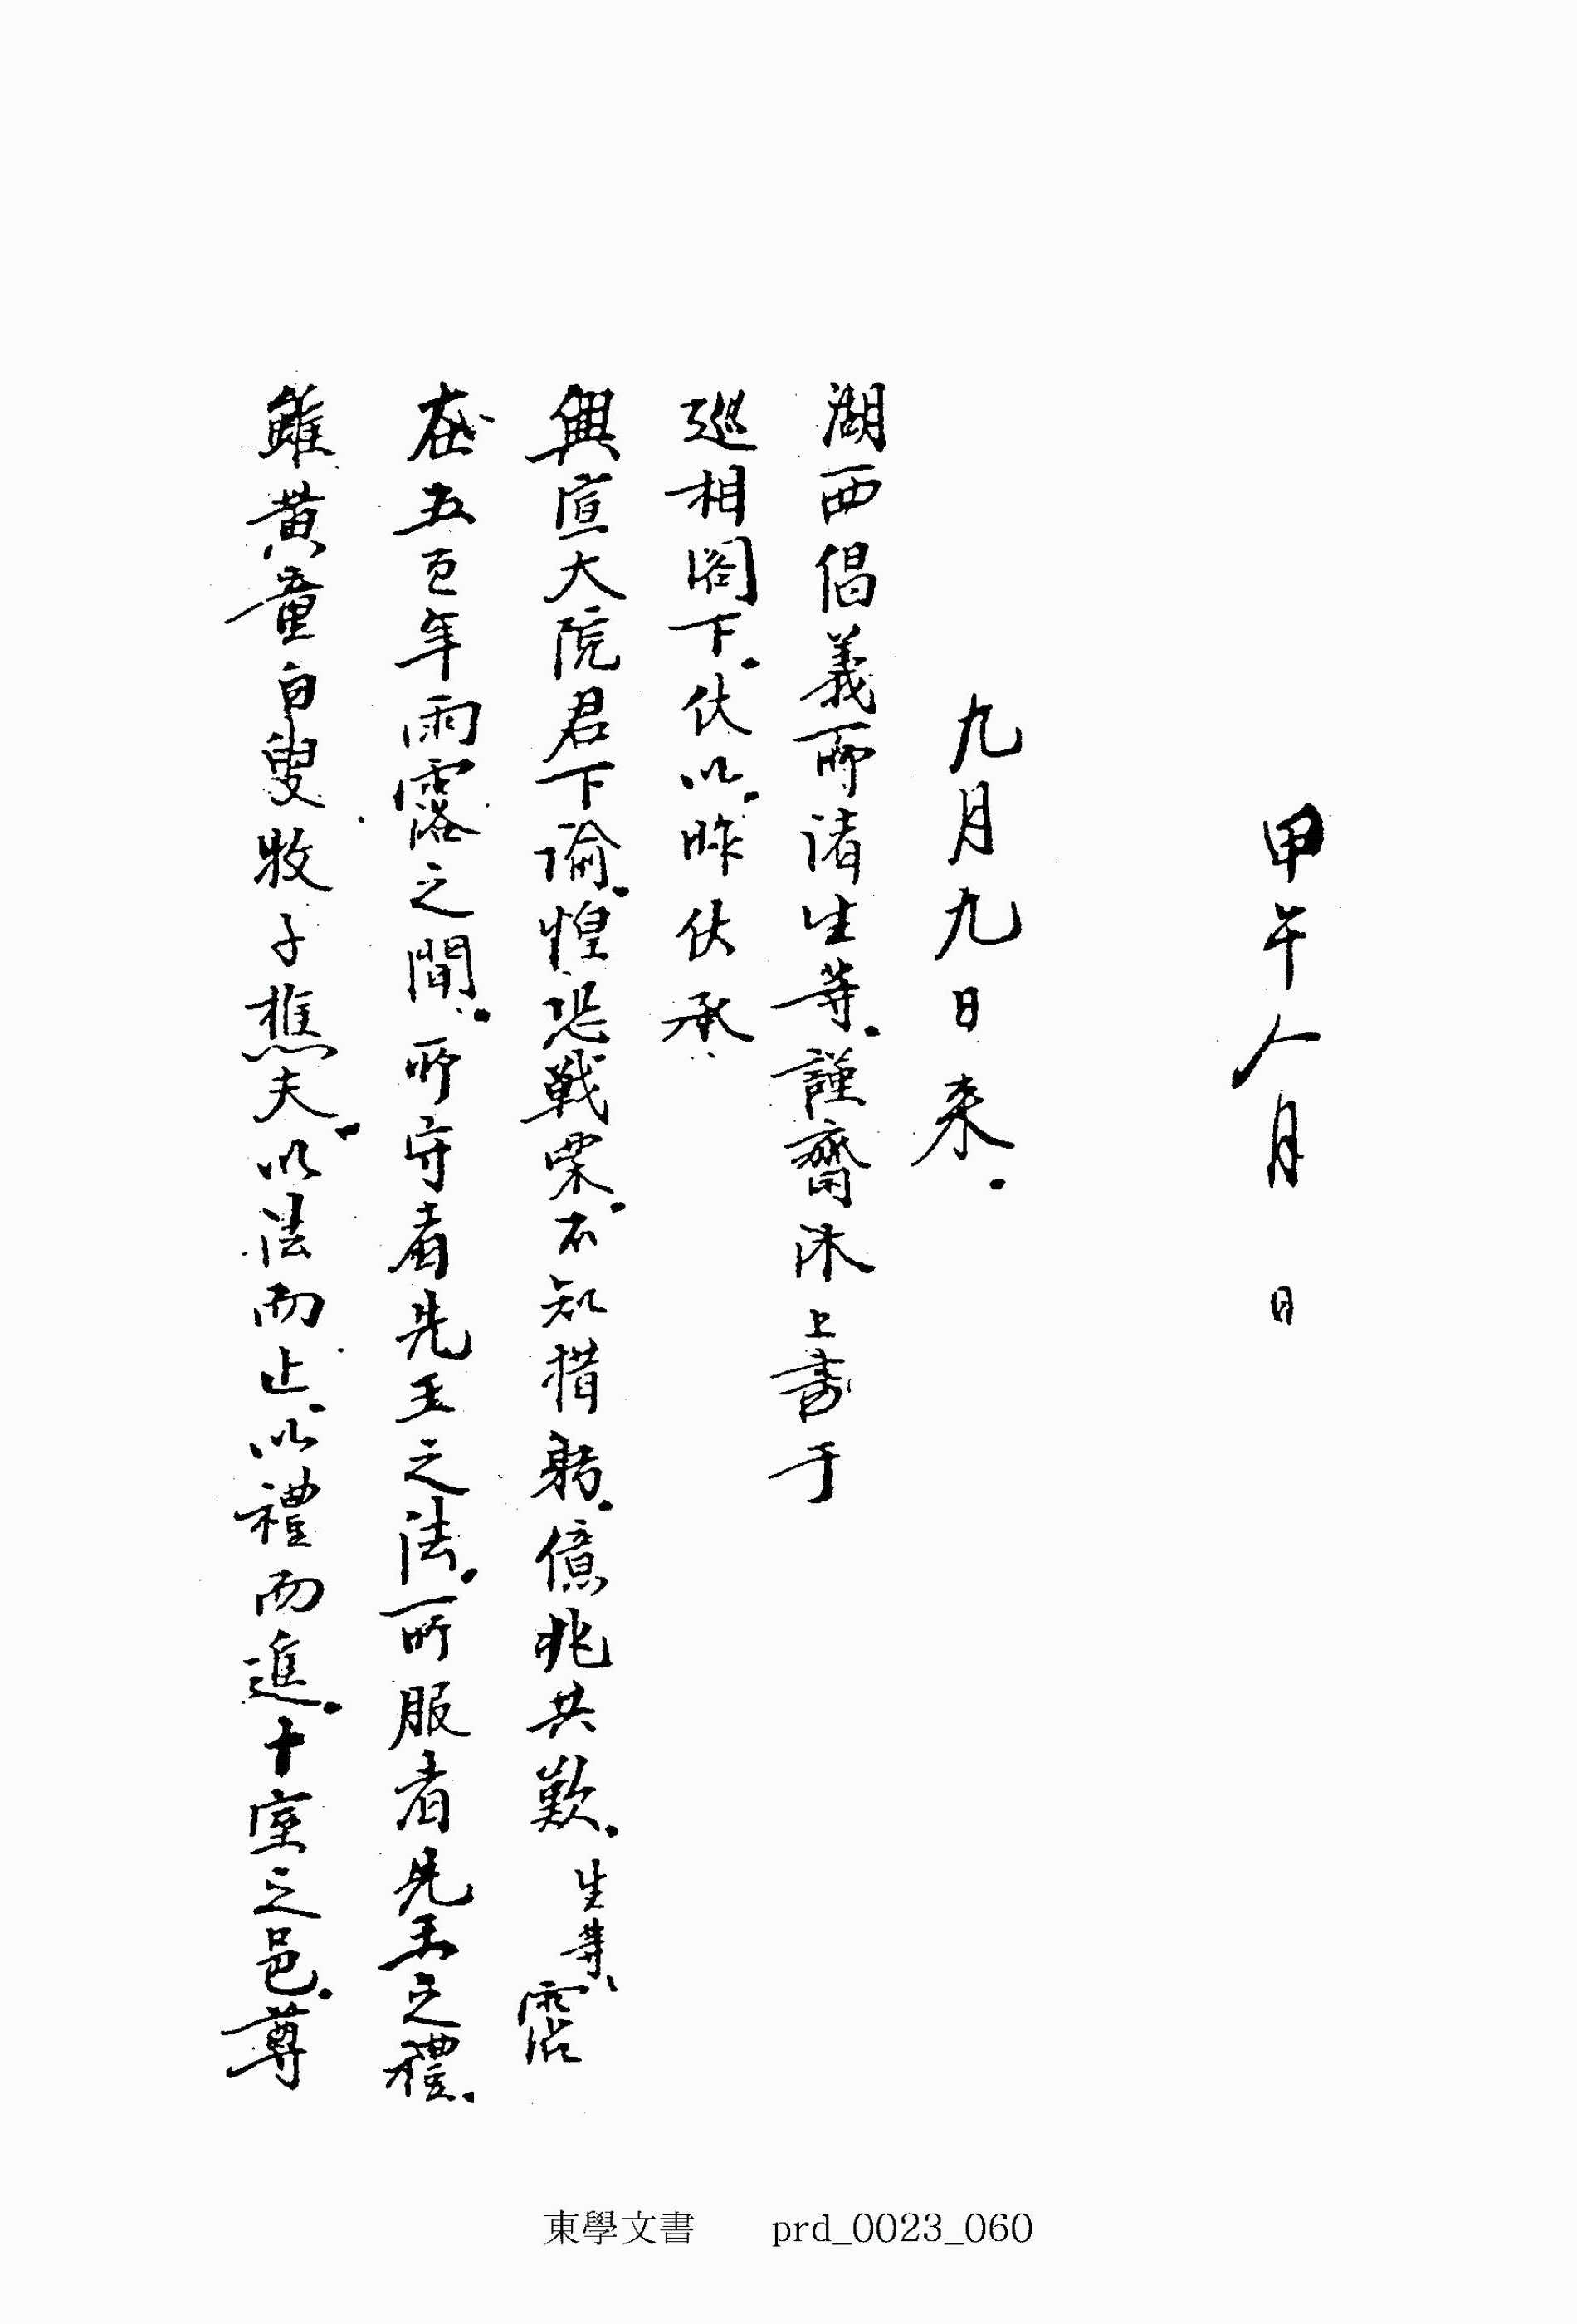 甲午八月　日
九月九日来.
湖西倡義所諸生等.謹齋沐上書于
巡相閤下.伏以.昨伏承
興宣大院君下諭.惶恐戰栗.不知措躬.億兆共歎.生等、霑
在五百年雨露之間.所守者先王之法.所服者先王之禮.
雖黄童白叟牧子樵夫.以法而止.以禮而進.十室之邑.尊
東學文書 prd_0023_060